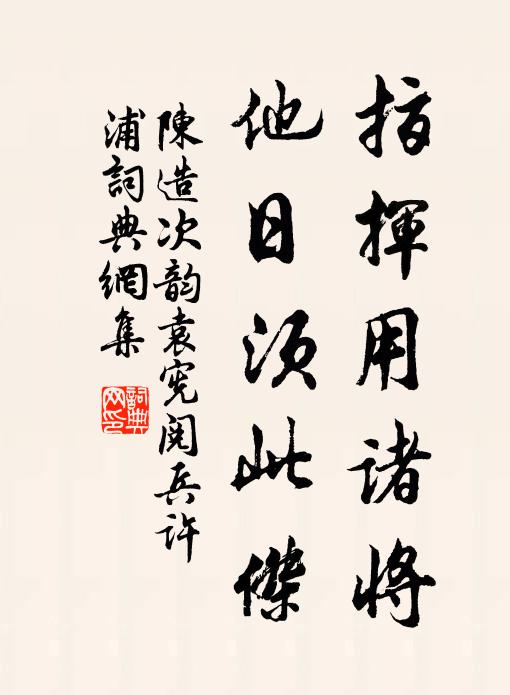 指揮用諸將
他日須此傑
陳造次韵袁憲閱兵許
浦詞典網集
詞典網印